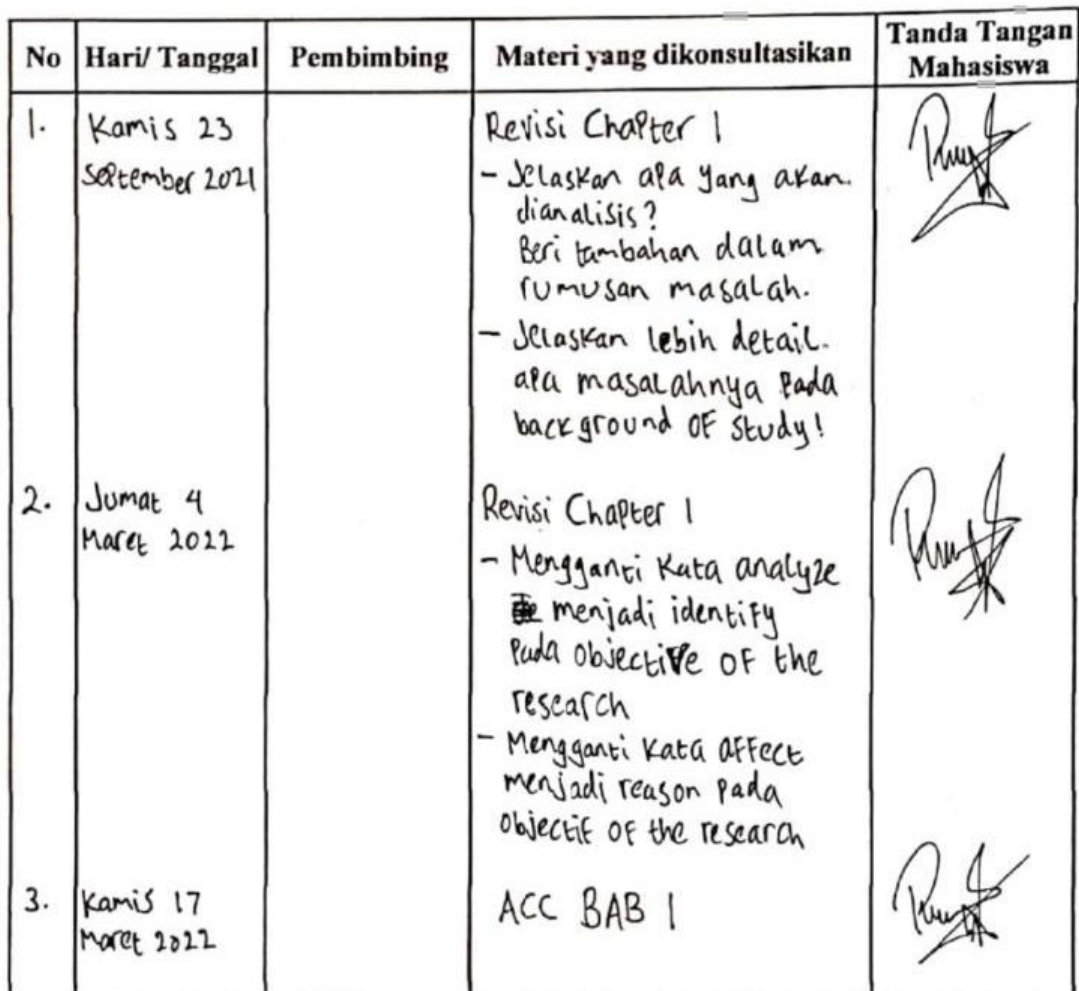 No Hari/ Tanggal Pembimbing Materi yang dikonsultasikan Tanda Tangan Mahasiswa
1. Kamis 23 September 2021
Revisi Chapter 1
- Jelaskan apa yang akan.
dianalisis?
Beri tambahan dalam
rumusan masalah.
- Jelaskan lebih detail.
apa masalahnya pada
background of study!
2. Jumat 4 Maret 2022
Revisi Chapter 1
- Mengganti kata analyze
menjadi identify
pada objective of the
research
- Mengganti kata affect
menjadi reason pada
objectif of the research
3. Kamis 17 Maret 2022
ACC BAB 1